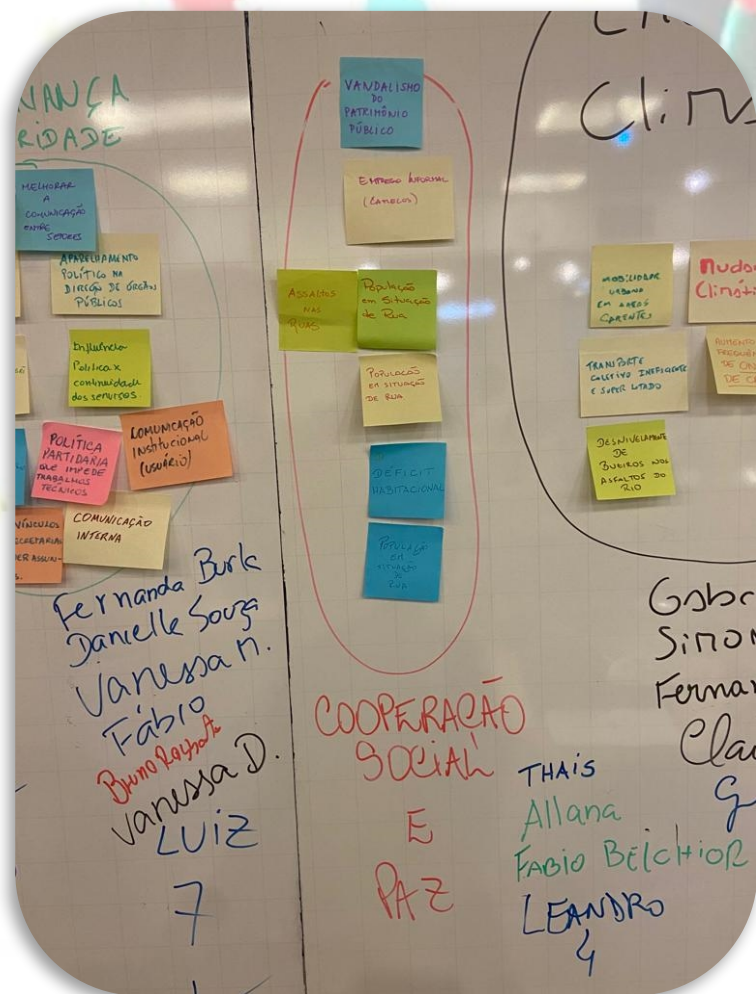 NANÇA
RIDADE
MELHORAR
A
COMUNICAÇÃO
ENTRE
SETORES
APARELHAMENTO
POLÍTICO NA
DIREÇÃO DE ÓRGÃOS
PÚBLICOS
Influência
Política x
continuidade
dos serviços
POLÍTICA
PARTIDARIA
QUE IMPEDE
TRABALHOS
TECNICOS
COMUNICAÇÃO
INSTITUCIONAL
(USUÁRIO)
VÍNCULOS
COMUNICAÇÃO
INTERNA
Fernanda Burle
Danielle Souza
Vanessa M.
Fábio
Bruno
Vanessa D.
LUIZ
7
VANDALISMO
DO
PATRIMÔNIO
PÚBLICO
EMPREGO INFORMAL
(CAMELOS)
ASSALTOS
NAS
RUAS
População
em Situação
de Rua
POPULAÇÃO
EM SITUAÇÃO
DE RUA
DÉFICIT
HABITACIONAL
POPULAÇÃO
EM
SITUAÇÃO
DE
RUA
COOPERAÇÃO
SOCIAL
E
PAZ
THAÍS
Allana
FABIO BELCHIOR
LEANDRO
4
MOBILIDADE
URBANA
EM AREAS
CARENTES
TRANSPORTE
COLETIVO INEFICIENTE
E SUPER LOTADO
AUMENTO
DESNIVELAMENTO
DE
BUEIROS NOS
ASFALTOS DO
RIO